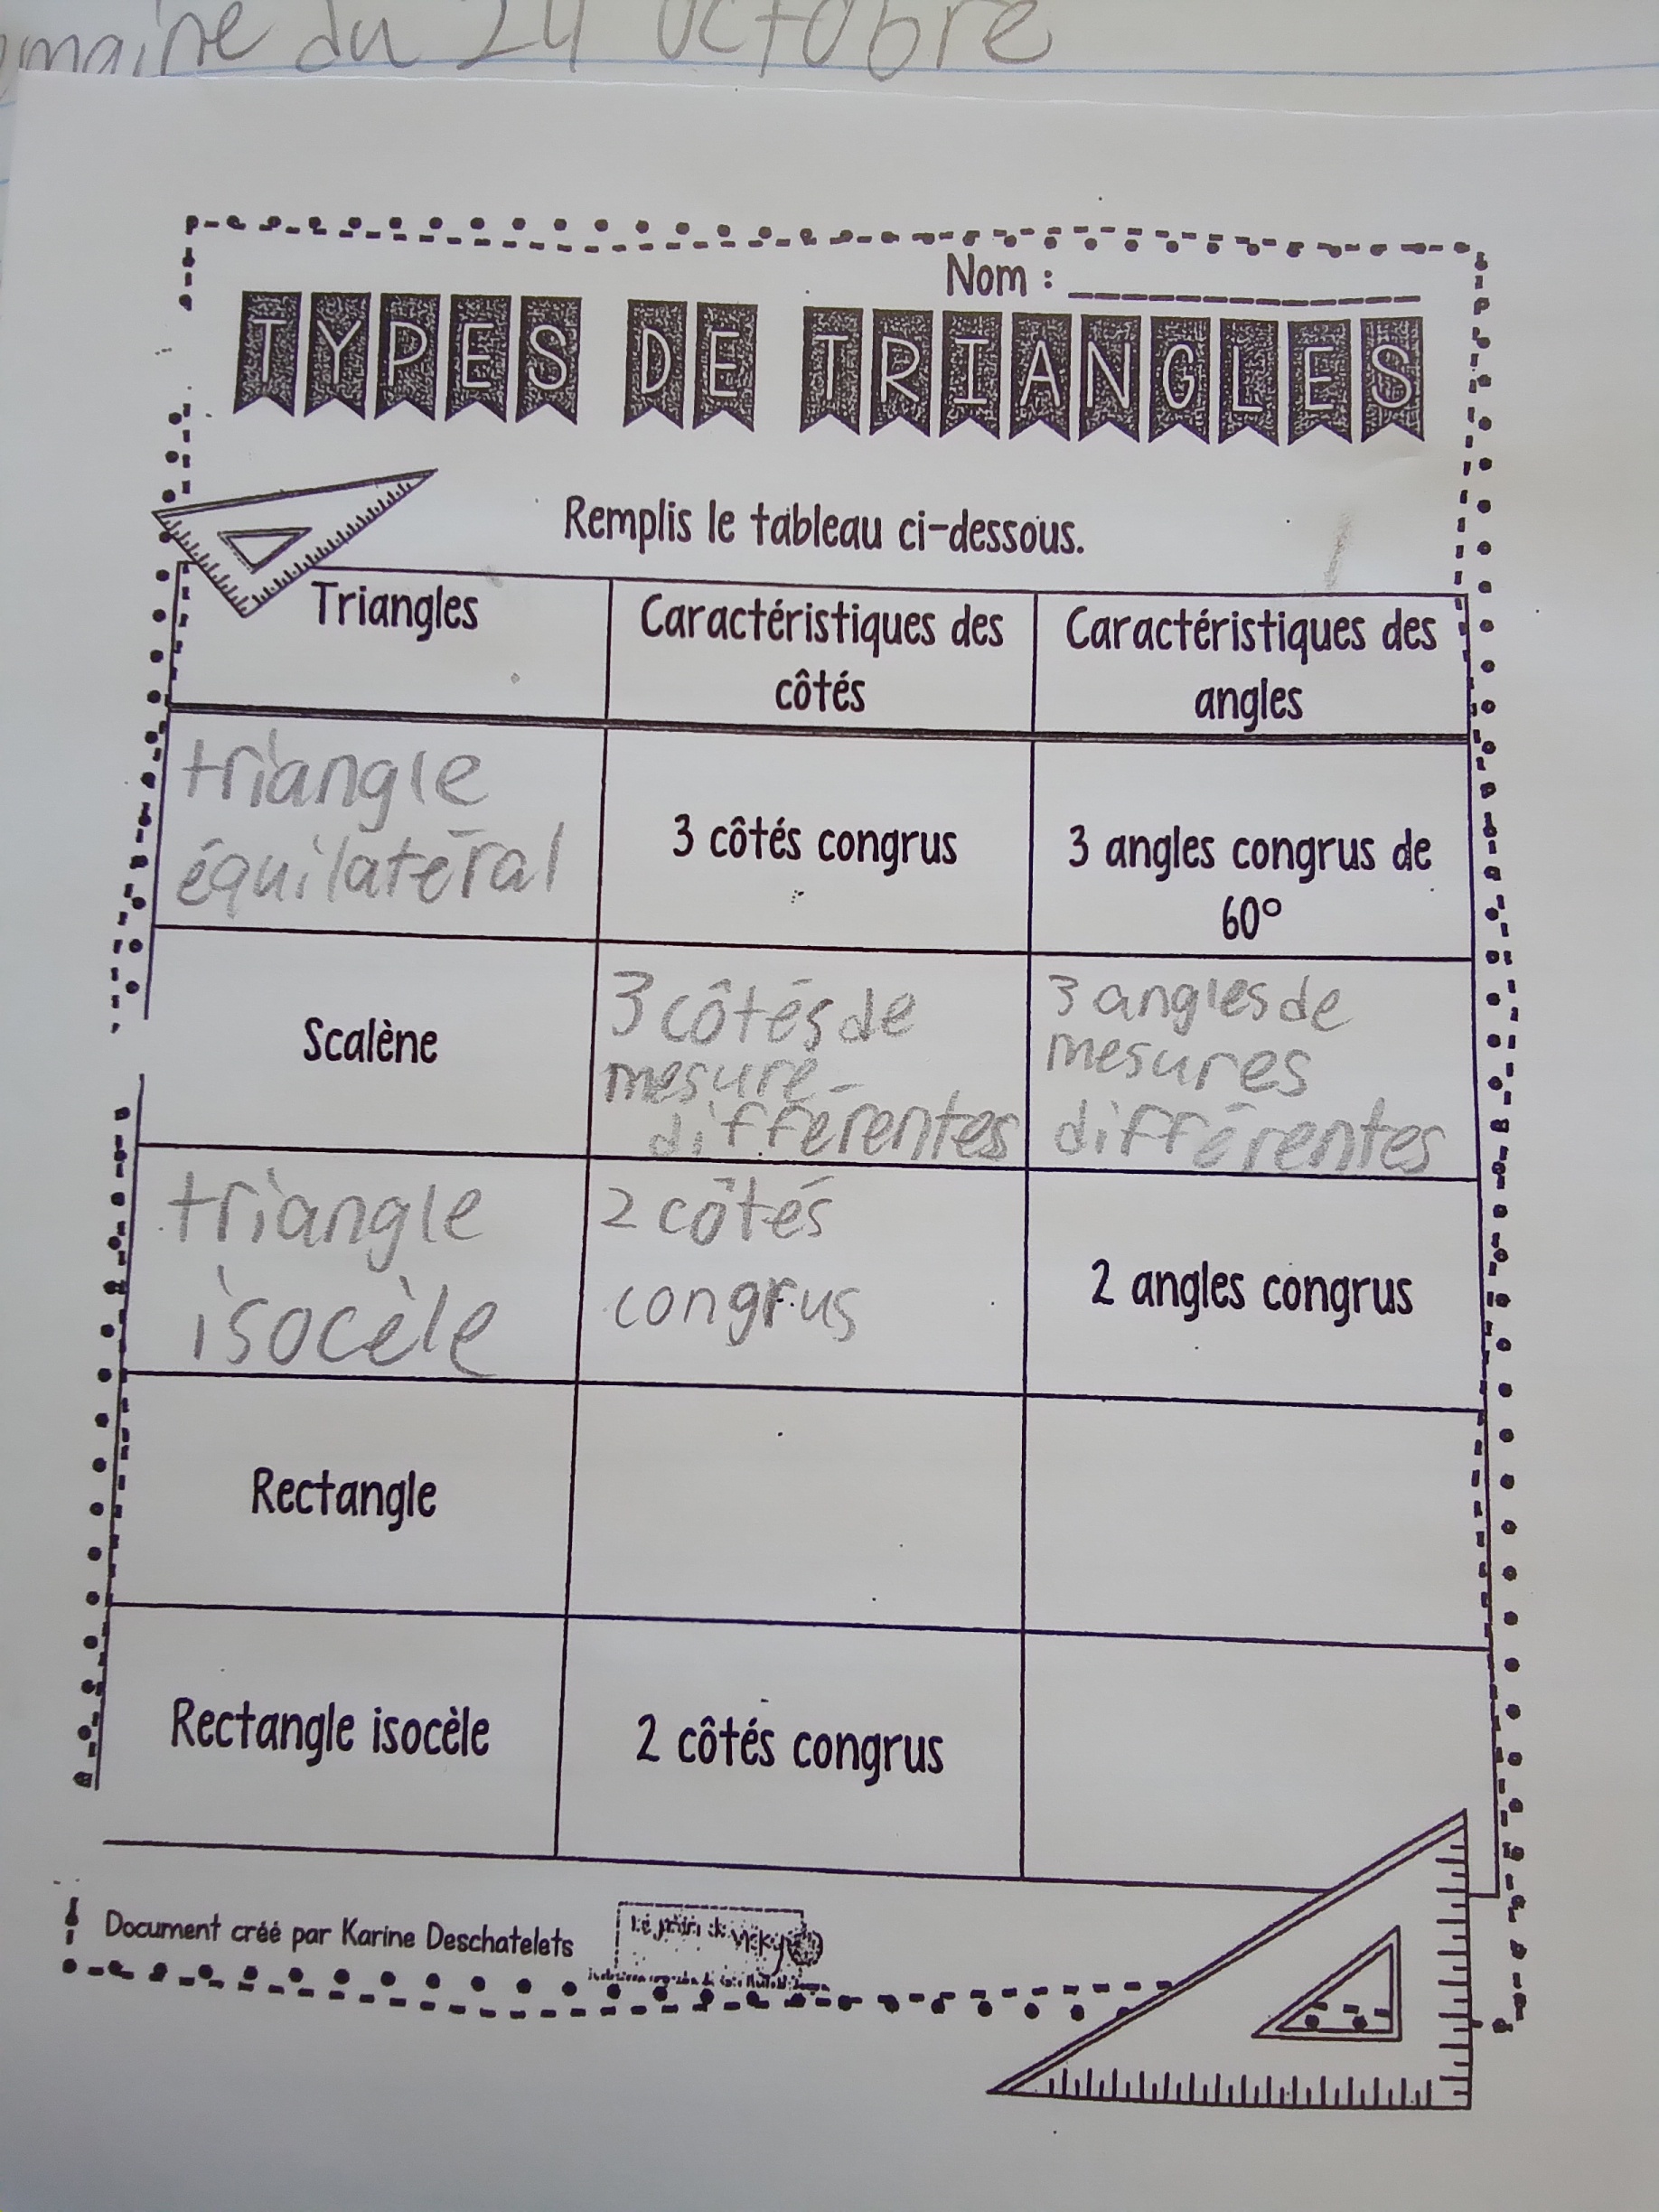 du 24 octobre
Nom :
TYPES DE TRIANGLES
Remplis le tableau ci-dessous.
Triangles
Caractéristiques des
côtés
Caractéristiques des
angles
triangle
équilatéral
3 côtés congrus
3 angles congrus de
60°
Scalène
3 côtés de
mesure
différentes
3 angles de
mesures
différentes
triangle
isocèle
2 côtés
congrus
2 angles congrus
Rectangle
Rectangle isocèle
2 côtés congrus
Document créé par Karine Deschatelets